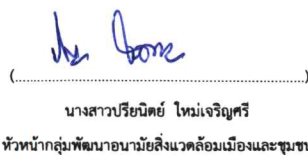 (........................................................................)
นางสาวปรียนิตย์ ใหม่เจริญศรี
หัวหน้ากลุ่มพัฒนาอนามัยสิ่งแวดล้อมเมืองและชุมชน